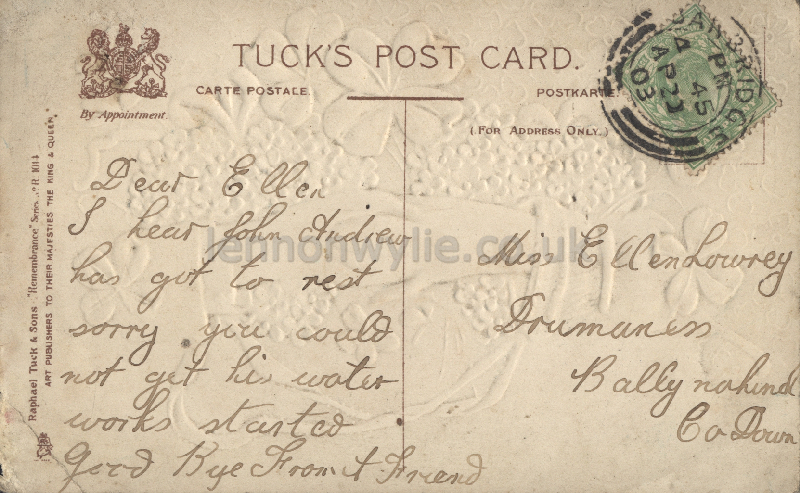 TUCK'S POST CARD.
CARTE POSTALE
POSTKARTE
By Appointment.
(FOR ADDRESS ONLY.)
BANBRIDGE
4 45 PM
AP 21
03
Raphael Tuck & Sons "Remembrance" Series
ART PUBLISHERS TO THEIR MAJESTIES THE KING & QUEEN.
Dear Ellen
I hear John Andrew
has got to rest
sorry you could
not get his water
works started
Good Bye From A Friend
Miss Ellen Lowrey
Drumaness
Ballynahinch
Co Down
lennonwylie.co.uk